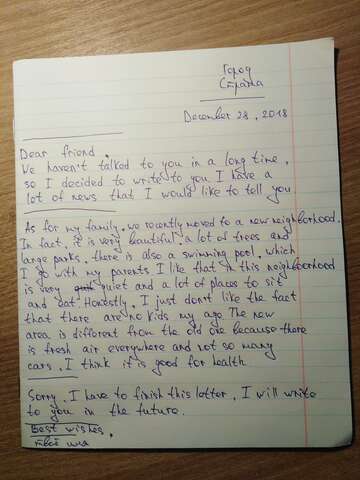 Город
Страна
December 28, 2018
Dear friend,
We haven't talked to you in a long time,
so I decided to write to you I have a
lot of news that I would like to tell you
As for my family, we recently moved to a new neighborhood.
In fact, it is very beautiful, a lot of trees and
large parks, there is also a swimming pool, which
I go with my parents I like that in this neighborhood
is very quiet and a lot of places to sit
and eat. Honestly, I just don't like the fact
that there are no kids my age The new
area is different from the old one because there
is fresh air everywhere and not so many
cars. I think it is good for health
Sorry, I have to finish this letter, I will write
to you in the future.
Best wishes,
твоё имя